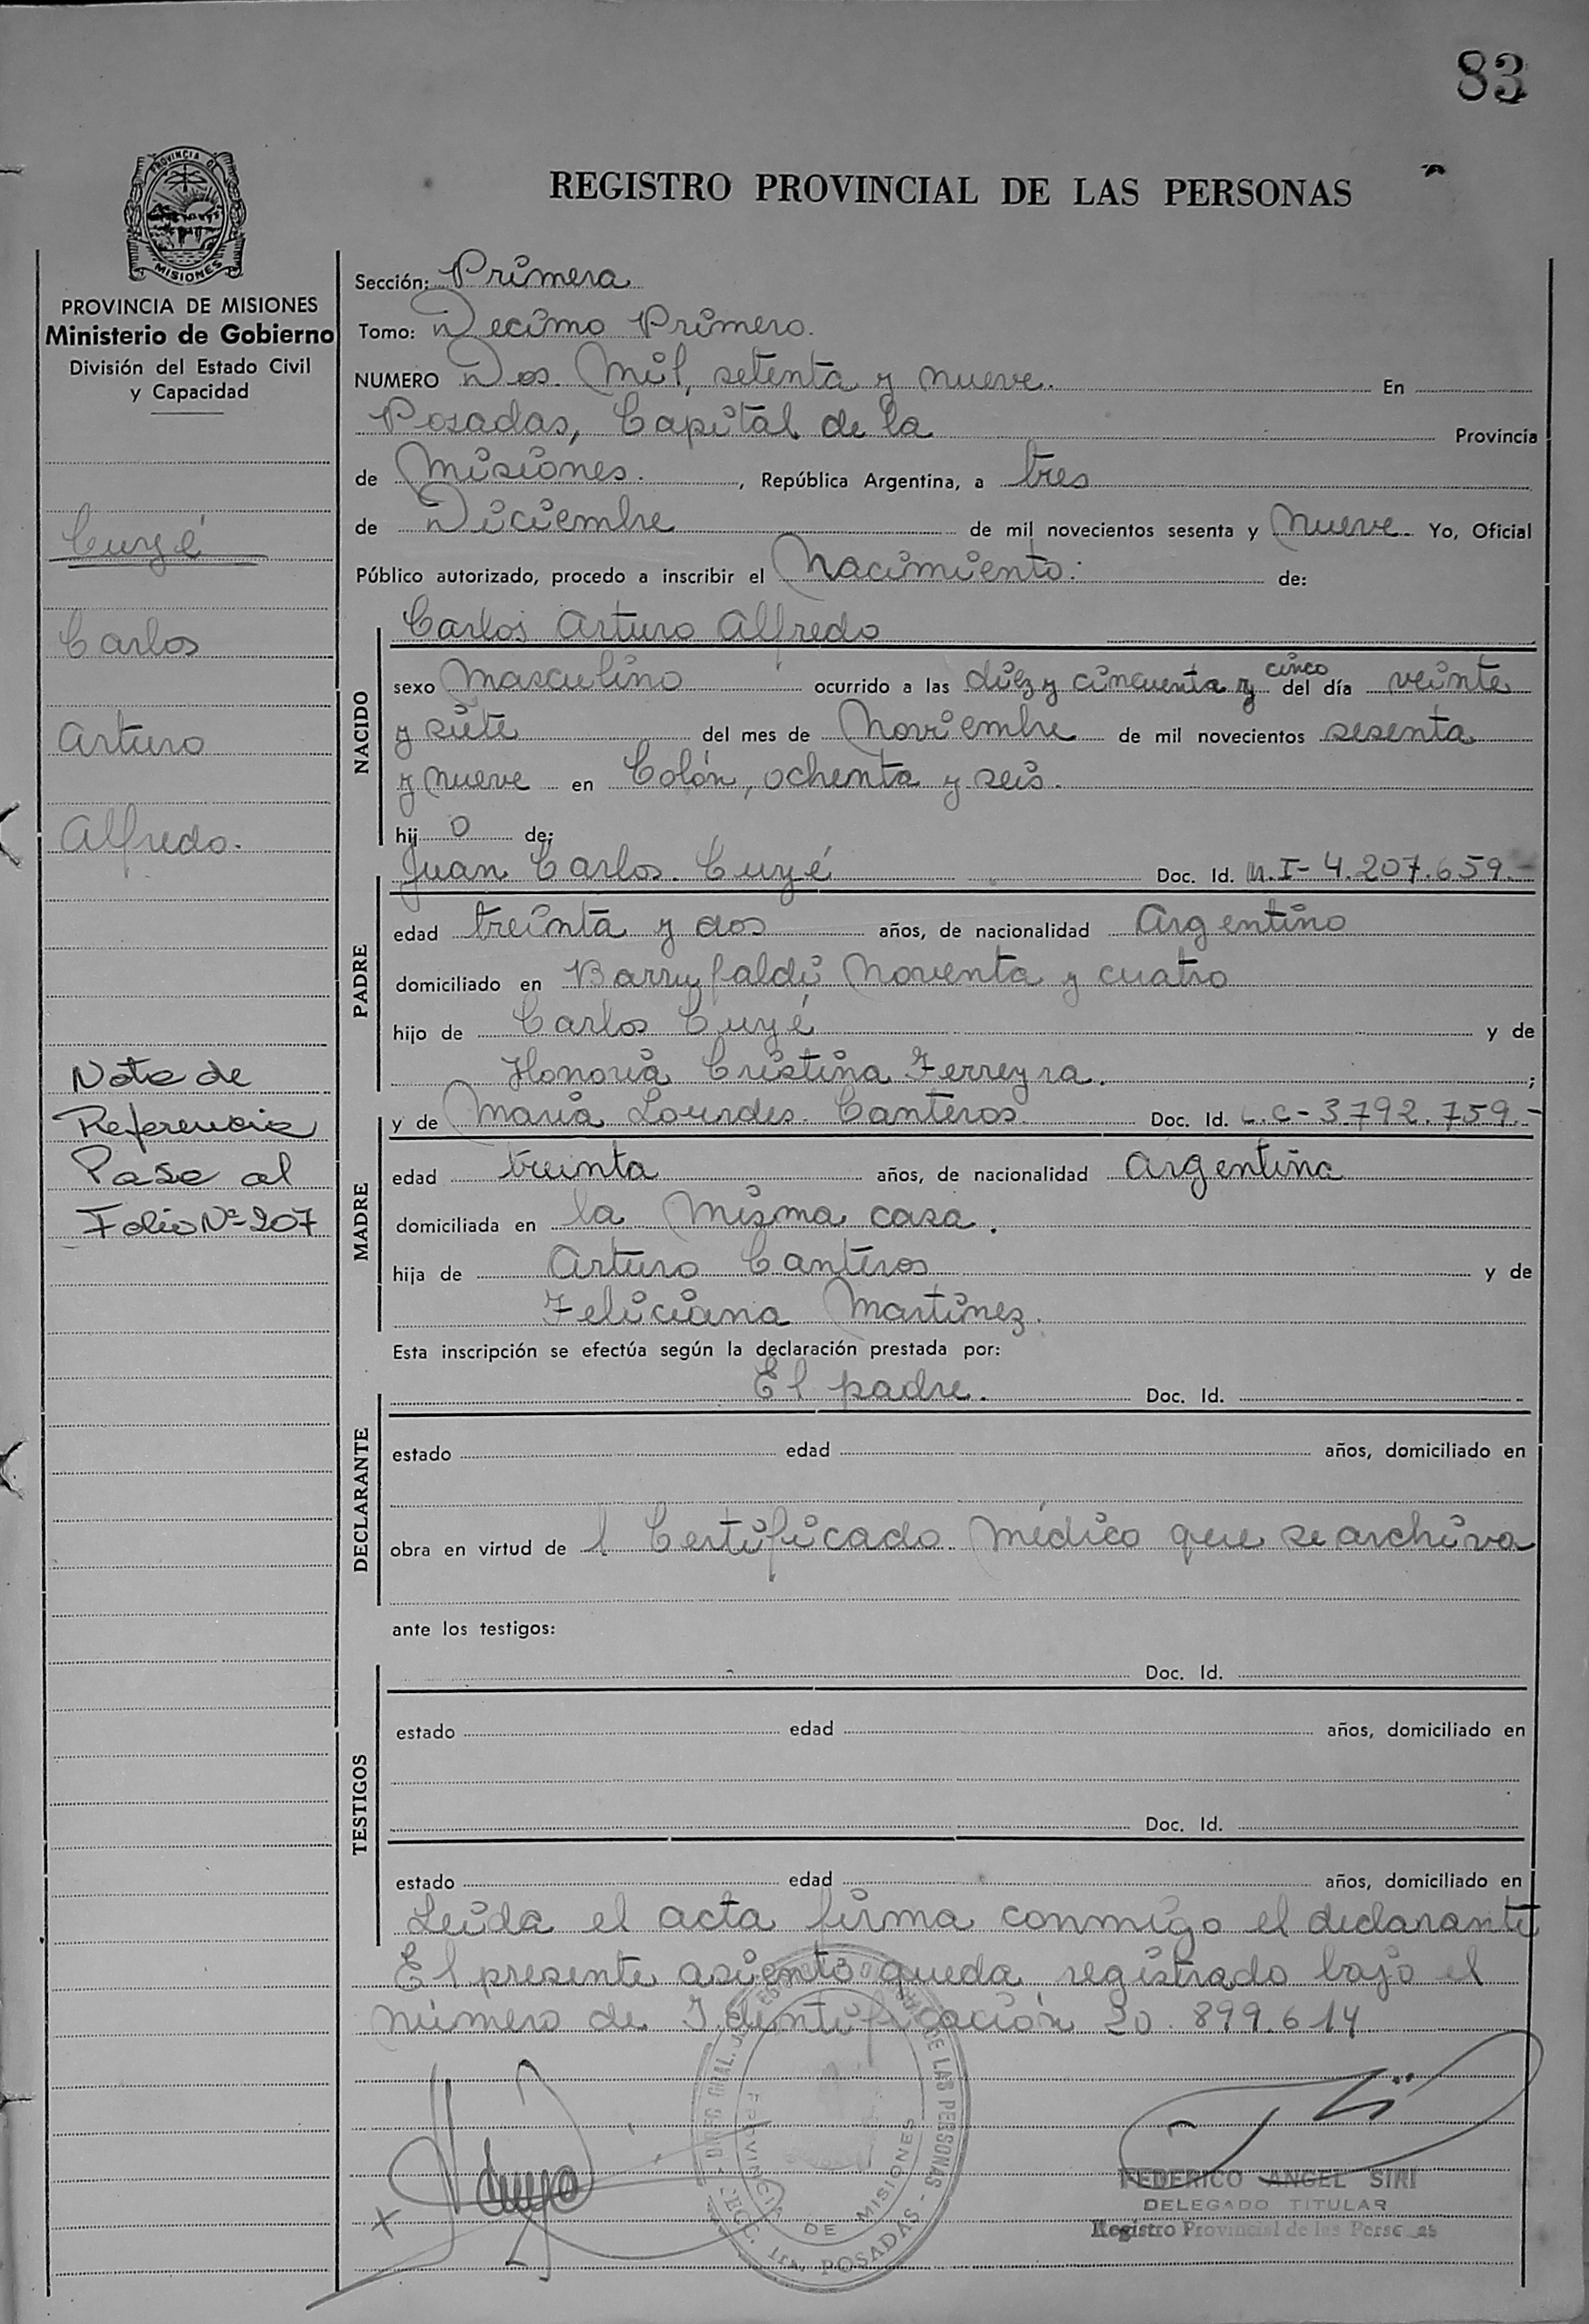 83
PROVINCIA DE
MISIONES
REGISTRO PROVINCIAL DE LAS PERSONAS
PROVINCIA DE MISIONES
Ministerio de Gobierno
División del Estado Civil
y Capacidad
Cuyé
Carlos
Arturo
Alfredo.
Nota de
Referencia
Pase al
Folio Nº 207
Sección: Primera
Tomo: Decimo Primero.
NUMERO Dos Mil, setenta y nueve. En
Posadas, Capital de la Provincia
de Misiones. , República Argentina, a tres
de Diciembre de mil novecientos sesenta y nueve Yo, Oficial
Público autorizado, procedo a inscribir el Nacimiento: de:
NACIDO
Carlos Arturo Alfredo
sexo Masculino ocurrido a las diez y cincuenta y cinco del día veinte
y siete del mes de Noviembre de mil novecientos sesenta
y nueve en Colón, ochenta y seis.
hijo de:
PADRE
Juan Carlos Cuyé Doc. Id. M.I- 4.207.659.-
edad treinta y dos años, de nacionalidad Argentino
domiciliado en Barrufaldi Noventa y cuatro
hijo de Carlos Cuyé y de
Honoria Cristina Ferreyra. ;
MADRE
y de Maria Lourdes Canteros Doc. Id. L.C- 3.792.759.-
edad treinta años, de nacionalidad Argentina
domiciliada en la misma casa.
hija de Arturo Canteros y de
Feliciana Martinez.
Esta inscripción se efectúa según la declaración prestada por:
DECLARANTE
El padre. Doc. Id.
estado edad años, domiciliado en
obra en virtud de l Certificado Médico que se archiva
ante los testigos:
TESTIGOS
Doc. Id.
estado edad años, domiciliado en
Doc. Id.
estado edad años, domiciliado en
Leida el acta firma conmigo el declarante
El presente asiento queda registrado bajo el
número de Identificación 20.899.614
DE LAS PERSONAS - POSADAS
PROVINCIA DE MISIONES
FEDERICO ANGEL SIRI
DELEGADO TITULAR
Registro Provincial de las Personas